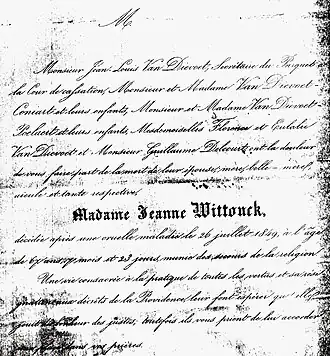 M.
Monsieur Jean Louis Van Dievoet, Secrétaire du Parquet
la Cour de cassation, Monsieur et Madame Van Dievoet
et leurs enfants, Monsieur et Madame Van Dievoet
et leurs enfants, Mesdemoiselles Florence et Eulalie
Van Dievoet et Monsieur Guillaume Delcourt ont la douleur
de vous faire part de la mort de leur épouse, mère, belle-mère,
aïeule et tante respective,
Madame Jeanne Wittonck,
décédée après une cruelle maladie, le 26 juillet 1849, à l'âge
de 67 ans, mois et 23 jours, munie des secours de la religion
Une vie consacrée à la pratique de toutes les vertus et sa
décrets de la Providence, leur font espérer que elle
des justes; toutefois ils vous prient de lui accorder
vos prières.